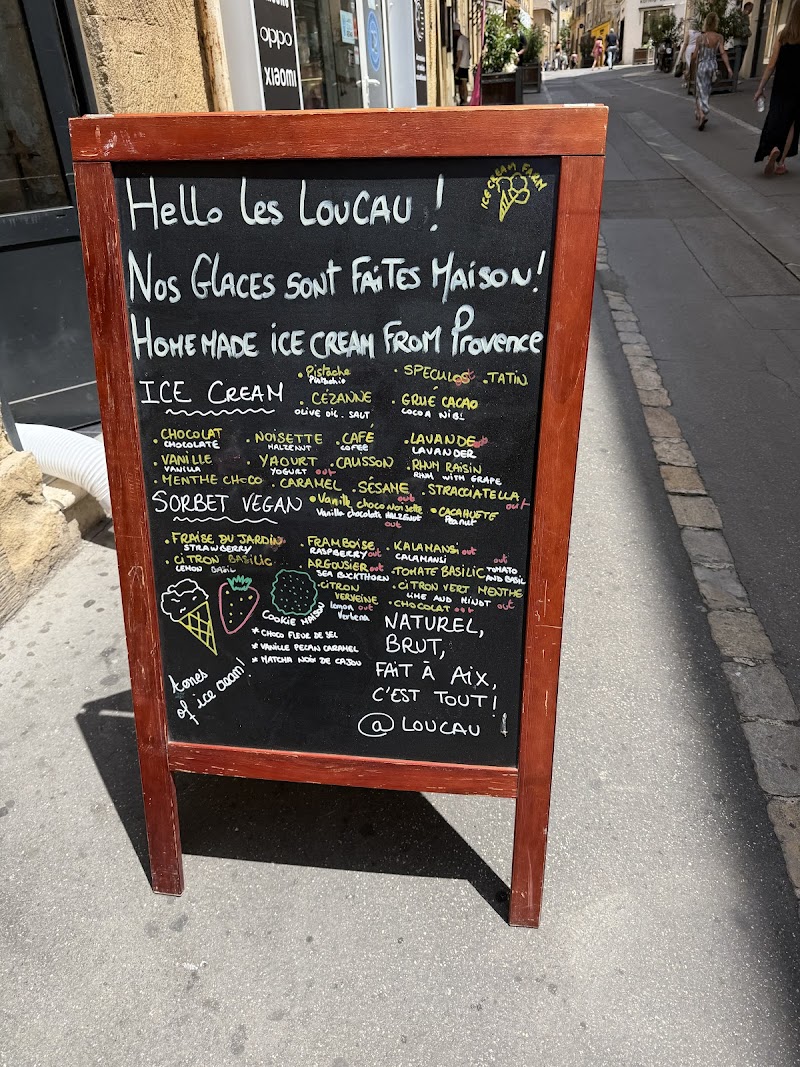 oppo
XIAOMI
ICE CREAM FARM
Hello les LOUCAU !
NOS GLACES SONT FAITES MAISON!
HOMEMADE ICE CREAM FROM Provence
ICE CREAM
• Pistache
Pistachio
• SPECULOS out
• TATIN
• CÉZANNE
OLIVE OIL. SALT
• GRUÉ CACAO
COCOA NIBS
• CHOCOLAT
CHOCOLATE
• NOISETTE
HALZENUT
• CAFÉ
COFFEE
• LAVANDE out
LAVANDER
• VANILLE
VANILLA
• YAOURT
YOGURT out
• CALISSON
• RHUM RAISIN
RHUM WITH GRAPE
• MENTHE CHOCO
• CARAMEL
• SÉSAME out
• STRACCIATELLA out
• Vanille choco Noisette
Vanilla chocolate HALZENUT
out
• CACAHUETE
Peanut
SORBET VEGAN
• FRAISE DU JARDIN
STRAWBERRY
• CITRON BASILIC
LEMON BASIL
FRAMBOISE
RASPBERRY out
ARGOUSIER out
SEA BUCKTHORN
• CITRON
VERVEINE
lemon out
Verbena
• KALAMANSI out
CALAMANSI
• TOMATE BASILIC TOMATO AND BASIL
out
• CITRON VERT MENTHE
LIME AND MINDT out
• CHOCOLAT out
COOKIE MAISON
* CHOCO FLEUR DE SEL
* VANILLE PECAN CARAMEL
* MATCHA NOIX DE CAJOU
of ice cream!
NATUREL,
BRUT,
FAIT À AIX,
C'EST TOUT!
@LOUCAU